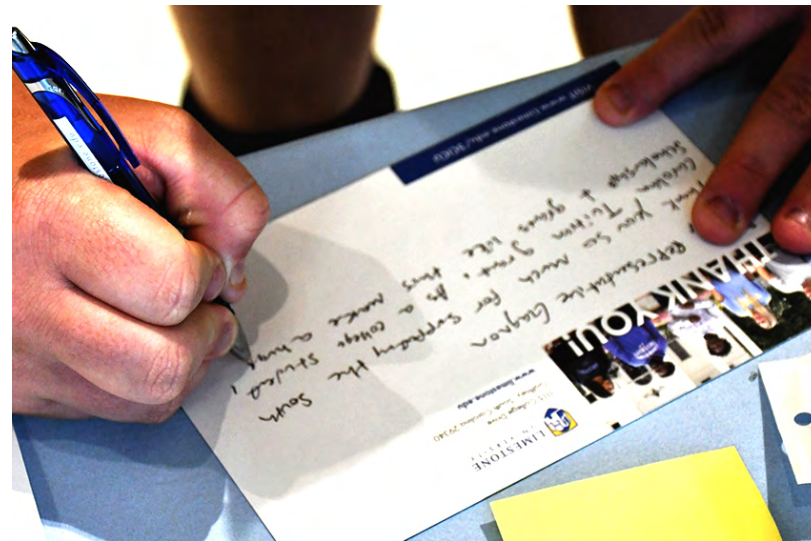 LIMESTONE
UNIVERSITY
1115 College Drive
Gaffney, South Carolina 29340
www.limestone.edu
THANK YOU!
Representative Gagnon
Thank you so much for supporting the South
Carolina Tuition Grant. As a college student,
scholarships + grants like this make a hug
visit www.limestone.edu/SCICU
stone.edu